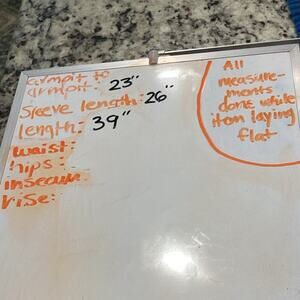 armpit to
armpit: 23"
Sleeve length: 26"
length: 39"
waist:
hips:
inseam:
rise:
All
measure-
ments
done while
item laying
flat